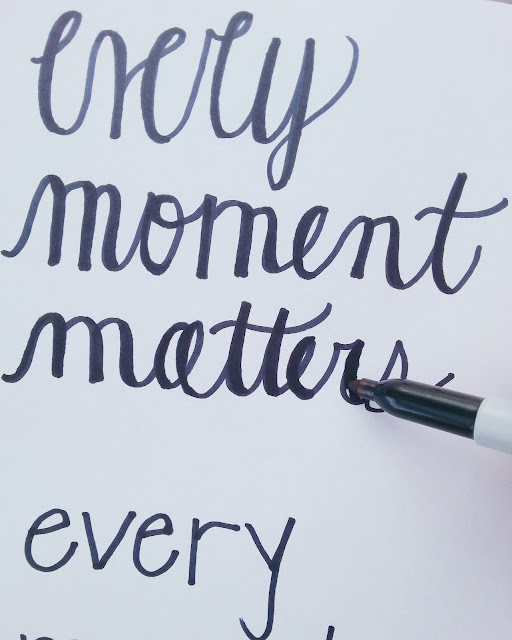 every
moment
matters
every